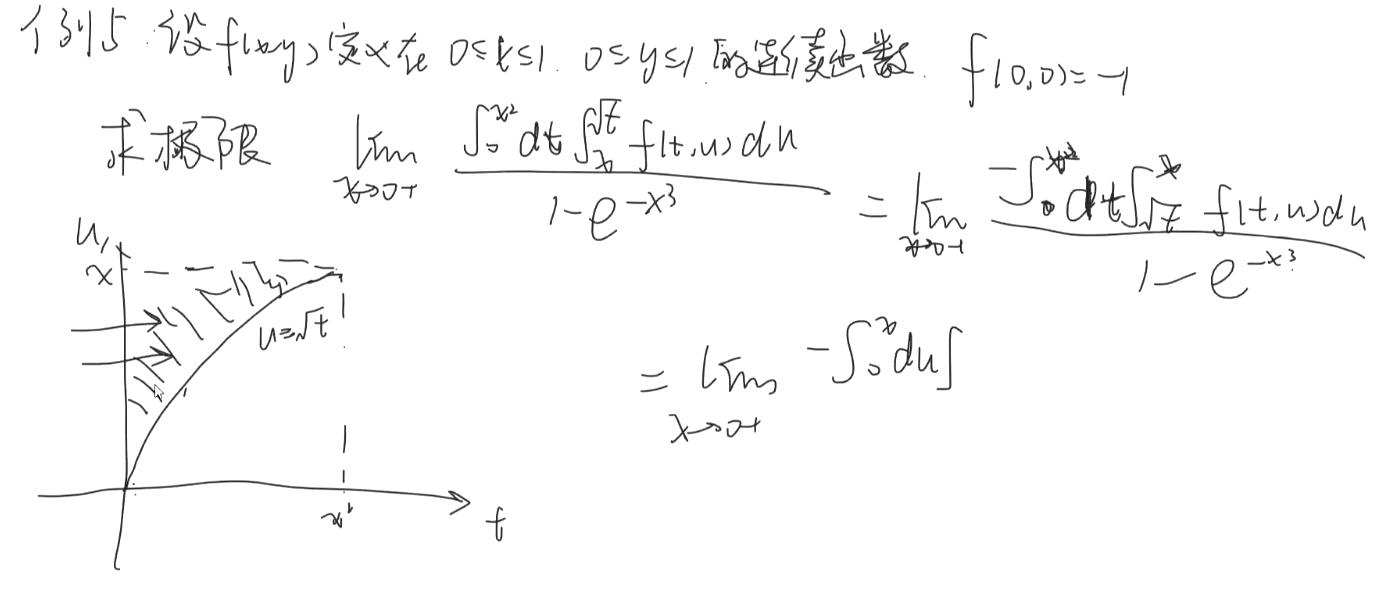 例5 设f(x,y)定义在 0≤x≤1. 0≤y≤1 的连续函数. f(0,0)=-1
求极限 lim x→0+ ∫₀^{x²}dt∫ₓ^{√t} f(t,u)du / 1-e^{-x³} = lim x→0+ -∫₀^{x²}dt∫_{√t}^{x} f(t,u)du / 1-e^{-x³}
= lim x→0+ -∫₀^{x}du∫
u
x
u=√t
x²
t